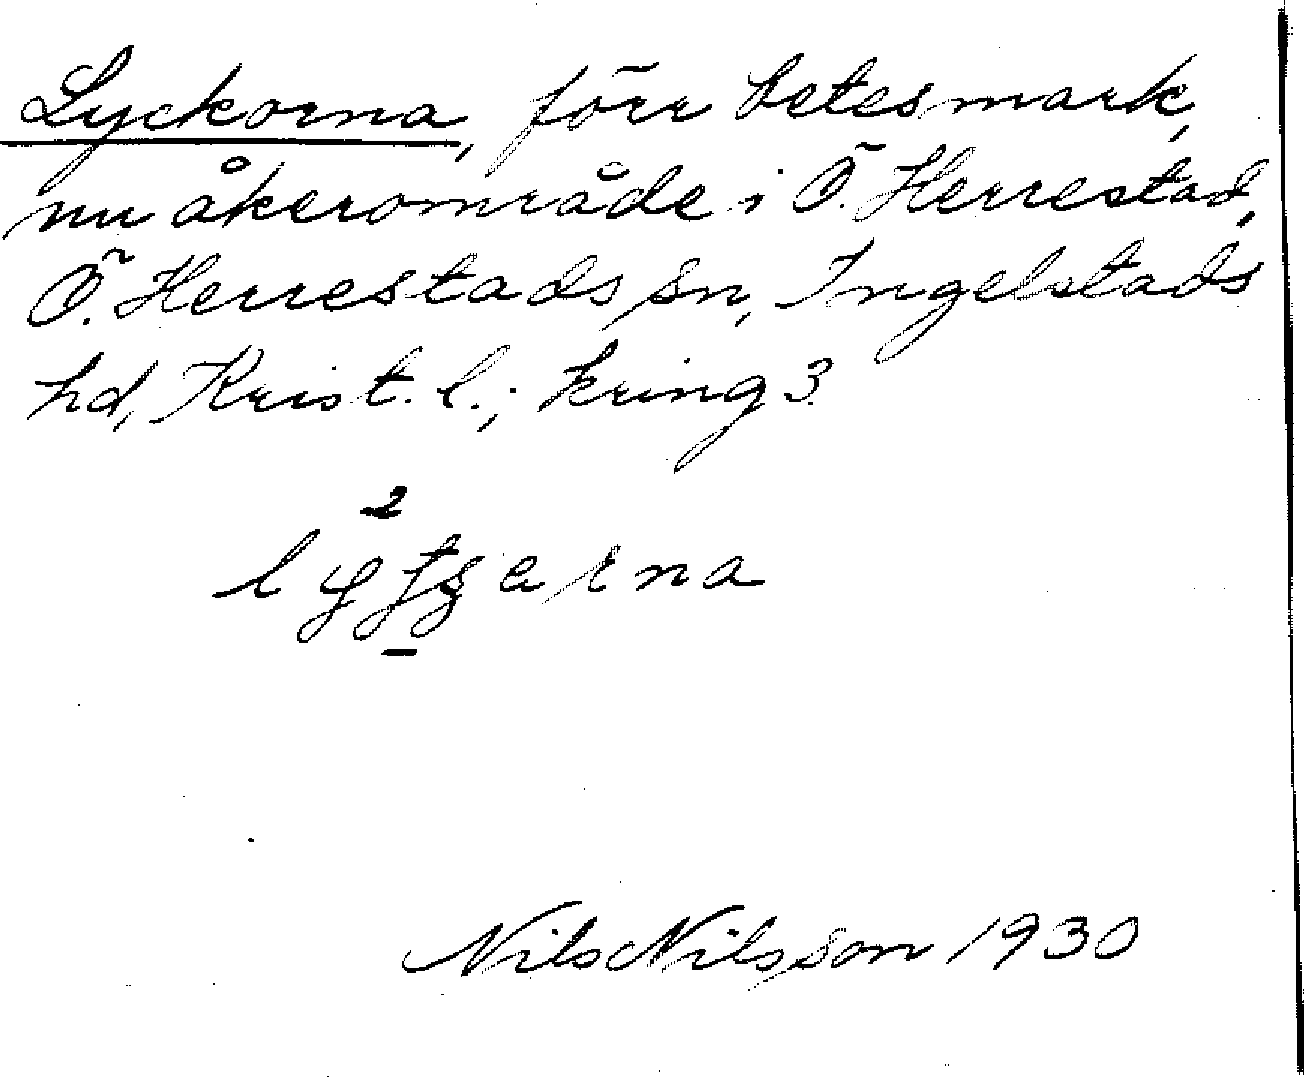 Lyckorna, förr betesmark,
nu åkerområde i Ö. Herrestad,
Ö. Herrestads sn, Ingelstads
hd, Krist. l.; kring 3.
2
Nils Nilsson 1930